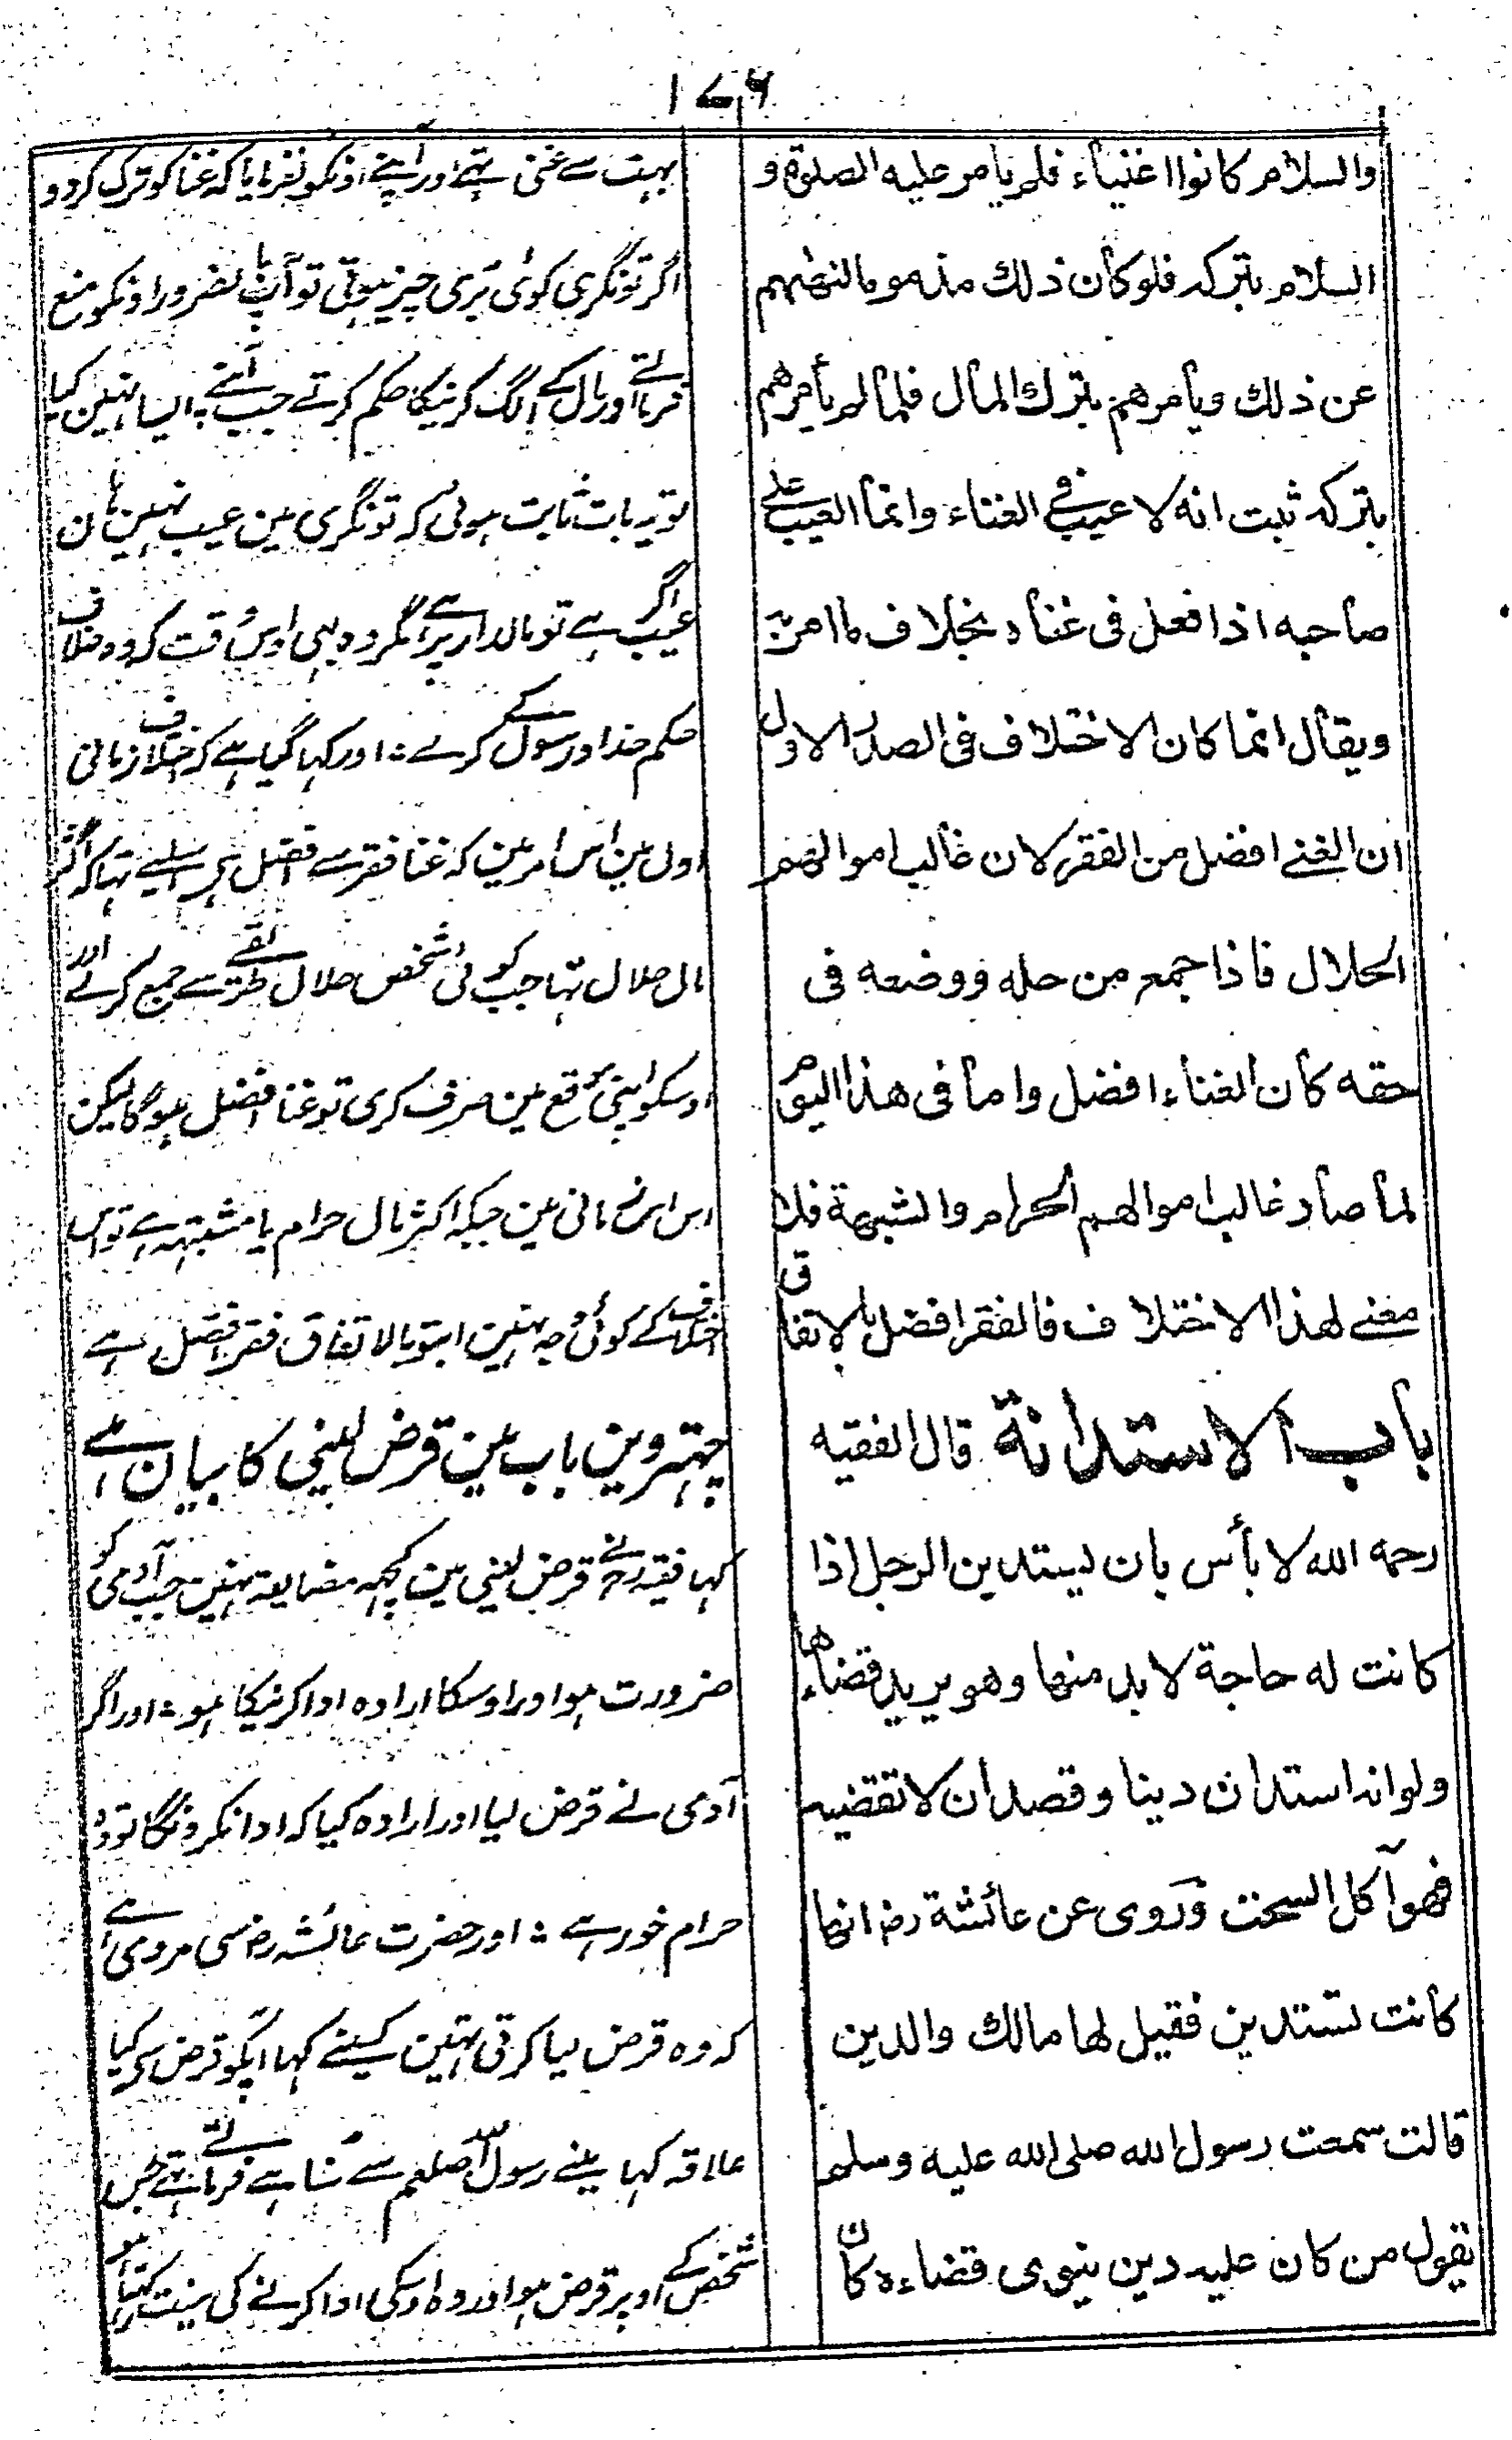 ١٧٦
والسلام كانوا اغنياء فلم يامر عليه الصلوة و
السلام بتركه فلو كان ذلك مذموما لنهٰهم
عن ذلك ويامرهم بترك المال فلما لم يأمرهم
بتركه ثبت انه لا عيب فى الغناء وانما العيب على
صاحبه اذا فعل فى غناه بخلاف ما امر به
ويقال انما كان الاختلاف فى الصدر الاول
ان الغنے افضل من الفقر لان غالب اموالهم
الحلال فاذا جمعه من حله ووضعه فى
حقه كان الغناء افضل واما فى هذا اليوم
لما صار غالب اموالهم الحرام والشبهة فلا
معنے لهذا الاختلاف فالفقر افضل بالاتفاق
باب الاستدانة قال الفقيه
رحمه الله لا بأس بان يستدين الرجل اذا
كانت له حاجة لا بد منها وهو يريد قضاءها
ولو انه استدان دينا وقصد ان لا تقضيه
فهو آكل السحت وروى عن عائشة رض انها
كانت تستدين فقيل لها مالك والدين
قالت سمعت رسول الله صلى الله عليه وسلم
يقول من كان عليه دين ينوى قضاءه كان
بہت سے غنی تہے اور آپنے اونکو نفرمایا کہ غنا کو ترک کردو
اگر تونگری کوئی بری چیز ہوتی تو آپ لضرور اونکو منع
فرماتے اور مال کے الگ کرنیکا حکم کرتے جب آپنے ایسا نہین کیا
تو یہ بات ثابت ہوئی کہ تونگری مین عیب نہین ہان
اگر عیب ہے تو مالدار پر ہے مگر وہ بہی اوس وقت کہ وہ خلاف
حکم خدا اور رسول کے کرے ؞ اور کہا گیا ہے کہ اختلاف زمانی
اول مین اس امر مین کہ غنا فقر سے افضل ہے اسلیے تہا کہ اکثر
مال حلال تہا جب کوئی شخص حلال طریقے سے جمع کرے اور
اوسکو اپنی موقع مین صرف کری تو غنا افضل ہوگا لیکن
اس زمانی مین جبکہ اکثر مال حرام یا مشتبہہ ہے تو اس
اختلاف کے کوئی وجہ نہین اب تو بالاتفاق فقر افضل ہے
چہترہوین باب مین قرض لینی کا بیان ہے
کہا فقیہ رح نے قرض لینی مین کچہہ مضایقہ نہین جب آدمی کو
ضرورت ہو اور اوسکا ارادہ ادا کرنیکا ہو ؞ اور اگر
آدمی نے قرض لیا اور ارادہ کیا کہ ادا نکرونگا تو وہ
حرام خور ہے ؞ اور حضرت عائشہ رض سی مروی ہے
کہ وہ قرض لیا کرتی تہین کسینے کہا آپکو قرض سے کیا
علاقہ کہا مینے رسول اللہ صلعم سے سنا ہے فرماتے تہے جس
شخص کے اوپر قرض ہو اور وہ اوسکی ادا کرنے کی نیت رکہتا ہو